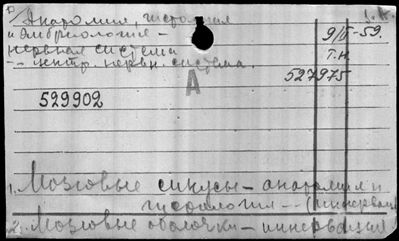 Анатомия, гистология
и эмбриология —
нервная система
-- центр. нервн. система.
9/II-59.
Т.Н.
527975
А
529902
1. Мозговые синусы — анатомия и
гистология — (иннервация
2. Мозговые оболочки — иннервация